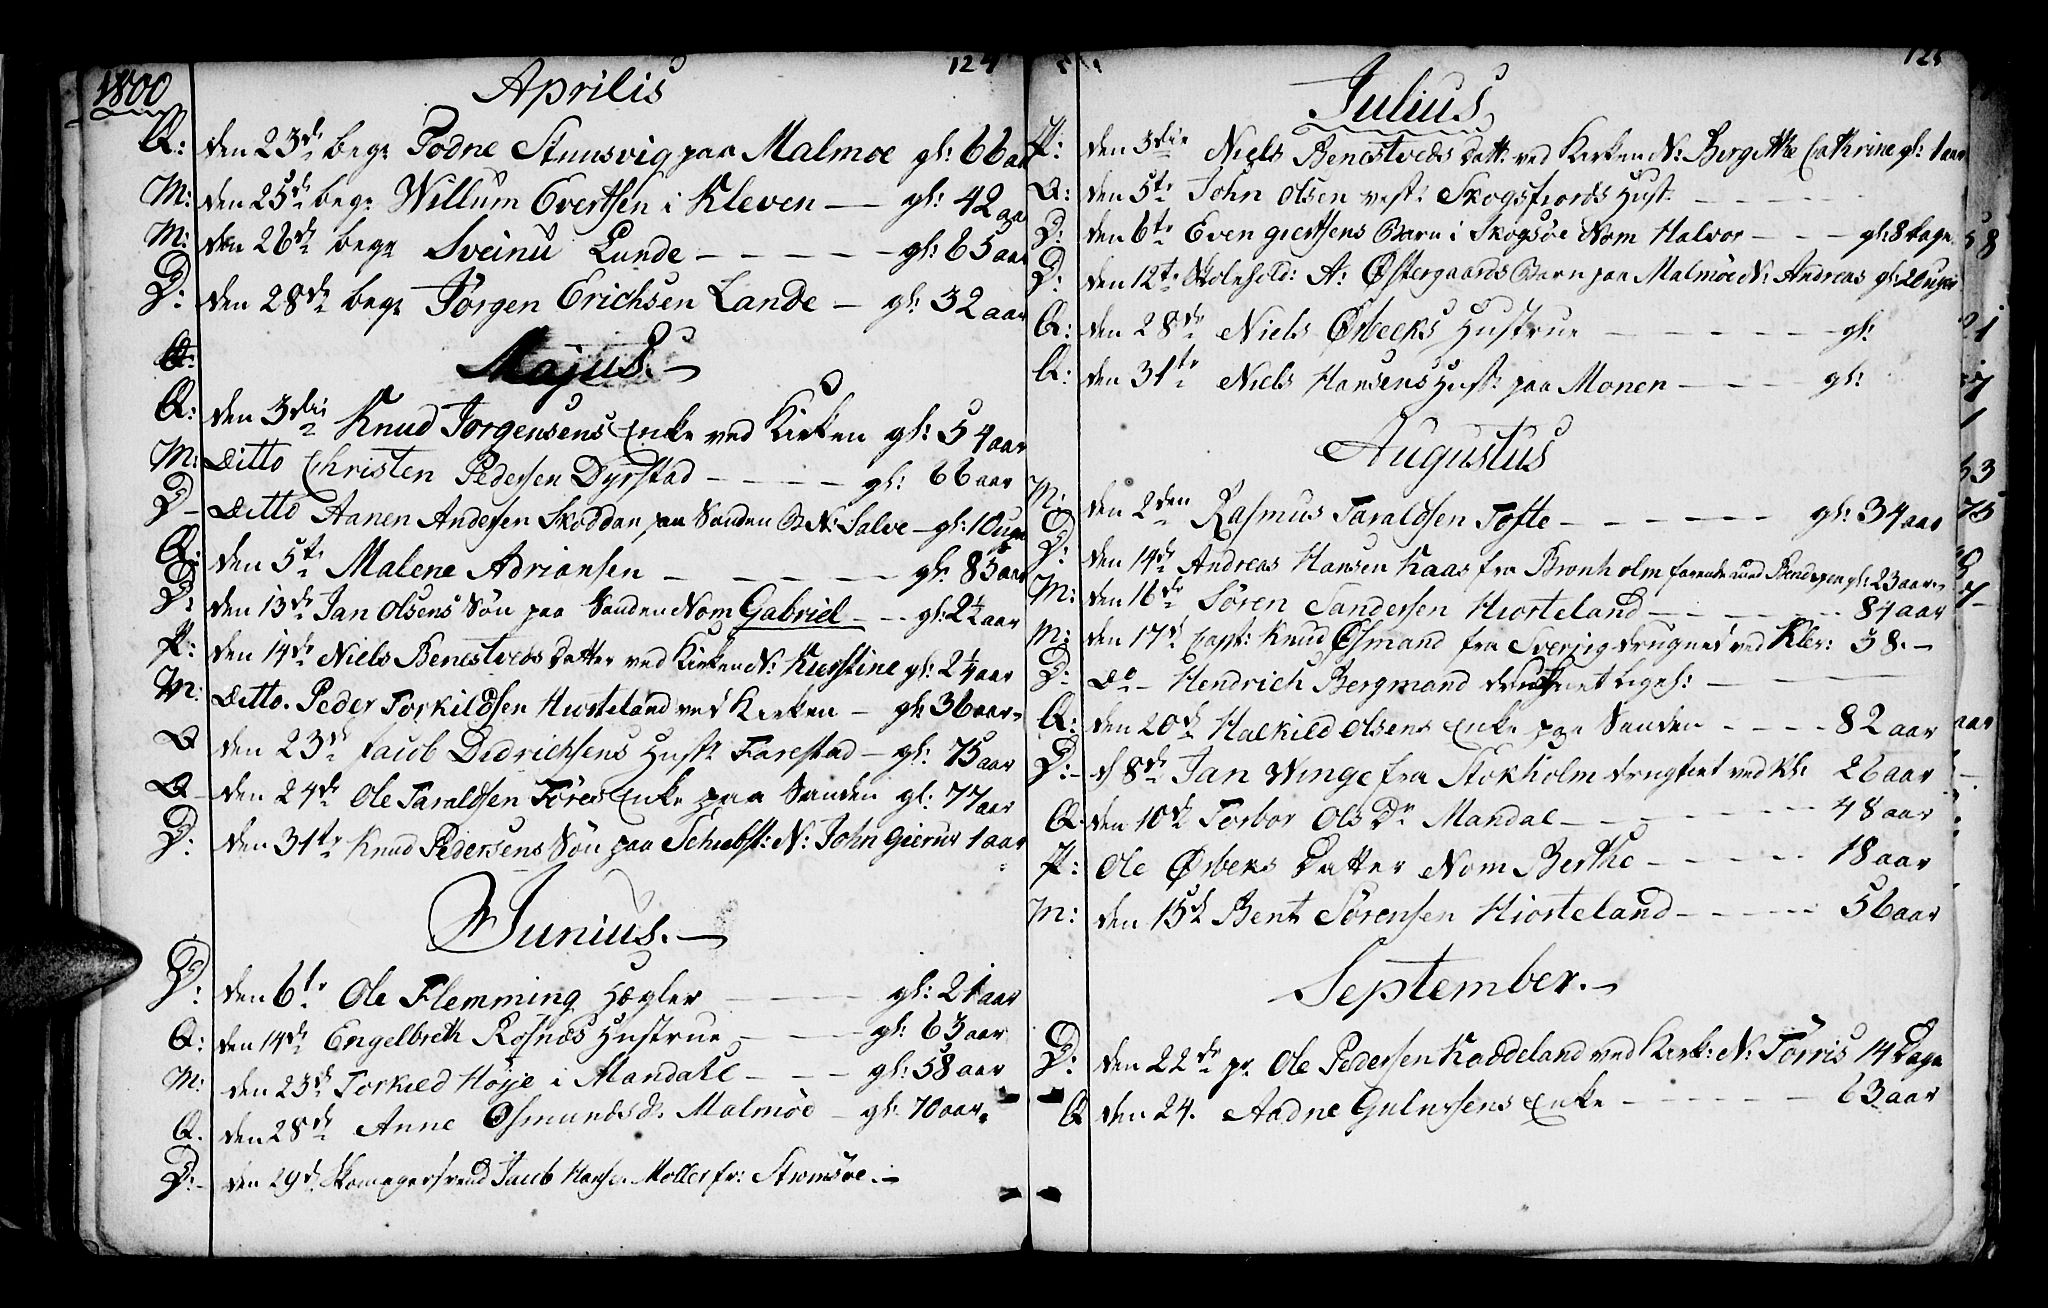 1800
124
Aprilis
Q: den 23de begr Todne Stuusvig paa Malmøe gl: 66 aar
M: den 25de begr Willum Evertsen i Kleven — gl: 42 aar
M: den 26de begr Sveinu Lunde — gl: 65 aar
D: den 28de begr Jørgen Erichsen Lande — gl: 32 aar
Majus.
Q: den 3die Knud Jørgensens Enke ved Kirken gl: 54 aar
M: Ditto Christen Pedersen Dyrstad — gl: 66 aar
D – Ditto Aanen Andersen Skoddan, paa Sanden B. N: Salve — gl: 10 uger
Q: den 5te Malene Adriansen — gl: 85 aar
D: den 13de Jan Olsens Søn paa Sanden Nom Gabriel — gl: 2½ aar
P: den 14de Niels Benestveds datter ved Kirken N: Kierstine gl: 2¼ aar
M: Ditto. Peder Torkildsen Hiorteland ved Kirken — gl: 36 aar
Q den 23de Jacob Didrichsens Hustr Farestad — gl: 75 aar
Q – den 24de Ole Taraldsen Føres Enke paa Sanden gl: 77 aar
D: den 31te Knud Pedersens Søn paa N: John Gierus 1 aar
Junius.
D: den 6te Ole Flemming Høgler — gl: 21 aar
Q: den 14de Engelbreth Rosnæs Hustrue — gl: 63 aar
M: den 23de Torkild Høye i Mandahl — gl: 58 aar
Q. den 28de Anne Osmundsdr. Malmöe — gl: 70 aar.
D:– den 29de Skomagersvend Jacob Hans: Moller fr: Strømsøe.
125
Julius
P: den 3die Niels Benestveds datt: ved Kirken N: Bergitthe Cathrine gl: 1 aar
Q: den 5te John Olsen vest: Skogsfiords Hust:
D: den 6te Even Giertsens Barn i Skogsøe Nom Halvor — gl: 8 dage
D: den 12te A: Østergaards Barn paa Malmöe N: Andreas gl: 20 uger
Q: den 28de Niels Ørbecks Hustrue — gl:
Q: den 31te Niels Hansens Hust: paa Monen — gl:
Augustus
M: den 2den Rasmus Taraldsen Tofte — gl: 34 aar
D: den 14de Andreas Hansen Kaas fra Bronholm farende med gl: 23 aar
M: den 16de Søren Sandersen Hiorteland — 84 aar
M: den 17de Capt: Knud Osmand fra Sverrig drugnet ved Klev: 38. –
D: Do – Hendrich Bergmand druknet liges: —
Q: den 20de Halkild Olsens Enke paa Sanden — 82 aar
D:– d 8de Jan Winge fra Stokholm drugnet ved Kl: 26 aar
Q. den 10de Torbor Ols Dr Mandal — 48 aar
P: Ole Ørbeks Datter Nom Berthe — 18 aar
M: den 15de Bent Sørensen Hiorteland — 56 aar
September.
D: den 22de pr Ole Pedersen Kaddeland ved Kirk: N: Tørris 14 Dage
Q den 24. Aadne Gulufsens Enke — 63 aar